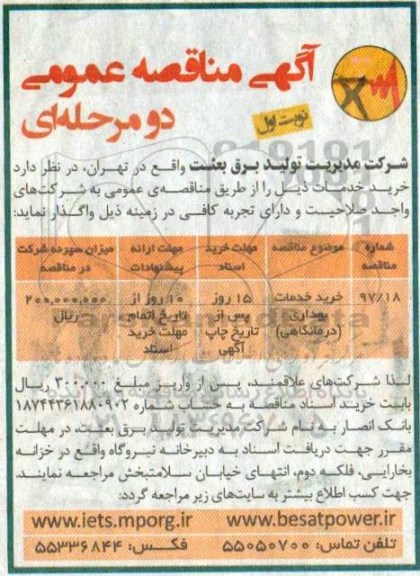 آگهی مناقصه عمومی
دو مرحله‌ای
نوبت اول
شرکت مدیریت تولید برق بعثت واقع در تهران، در نظر دارد
خرید خدمات ذیل را از طریق مناقصه‌ی عمومی به شرکت‌های
واجد صلاحیت و دارای تجربه کافی در زمینه ذیل واگذار نماید:
شماره مناقصه
موضوع مناقصه
مهلت خرید اسناد
مهلت ارائه پیشنهادات
میزان سپرده شرکت در مناقصه
۹۷/۱۸
خرید خدمات بهداری (درمانگاهی)
۱۵ روز پس از تاریخ چاپ آگهی
۱۰ روز از تاریخ اتمام مهلت خرید اسناد
۲۰۰,۰۰۰,۰۰۰ ریال
لذا شرکت‌های علاقمند، پس از واریز مبلغ ۳۰۰,۰۰۰ ریال
بابت خرید اسناد مناقصه به حساب شماره ۱۸۷۴۴۳۶۱۸۸۰۹۰۲
بانک انصار به نام شرکت مدیریت تولید برق بعثت، در مهلت
مقرر جهت دریافت اسناد به دبیرخانه نیروگاه واقع در خزانه
بخارایی، فلکه دوم، انتهای خیابان سلامتبخش مراجعه نمایند.
جهت کسب اطلاع بیشتر به سایت‌های زیر مراجعه گردد:
www.iets.mporg.ir www.besatpower.ir
تلفن تماس: ۵۵۰۵۰۷۰۰ فکس: ۵۵۳۳۶۸۴۴